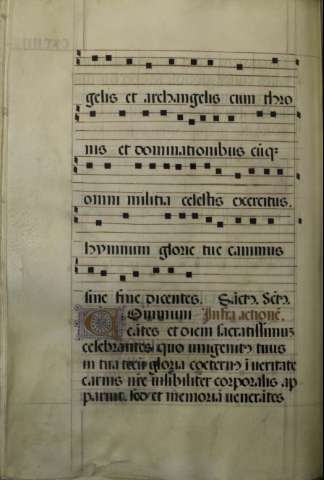 gelis et archangelis cum thro
nis et dominationibus cūq;
omni militia celestis exercitus.
hymnum glorie tue canimus
sine fine dicentes. Sāctꝰ. Sctꝰ.
Omnium Infra actionē.
cātes et diem sacratissimus
celebrantes quo unigenitꝰ tuus
in tua tecū gloria coeternꝰ ī veritate
carnis nr̄e visibiliter corporalis ap
paruit. sed et memoriā venerātes